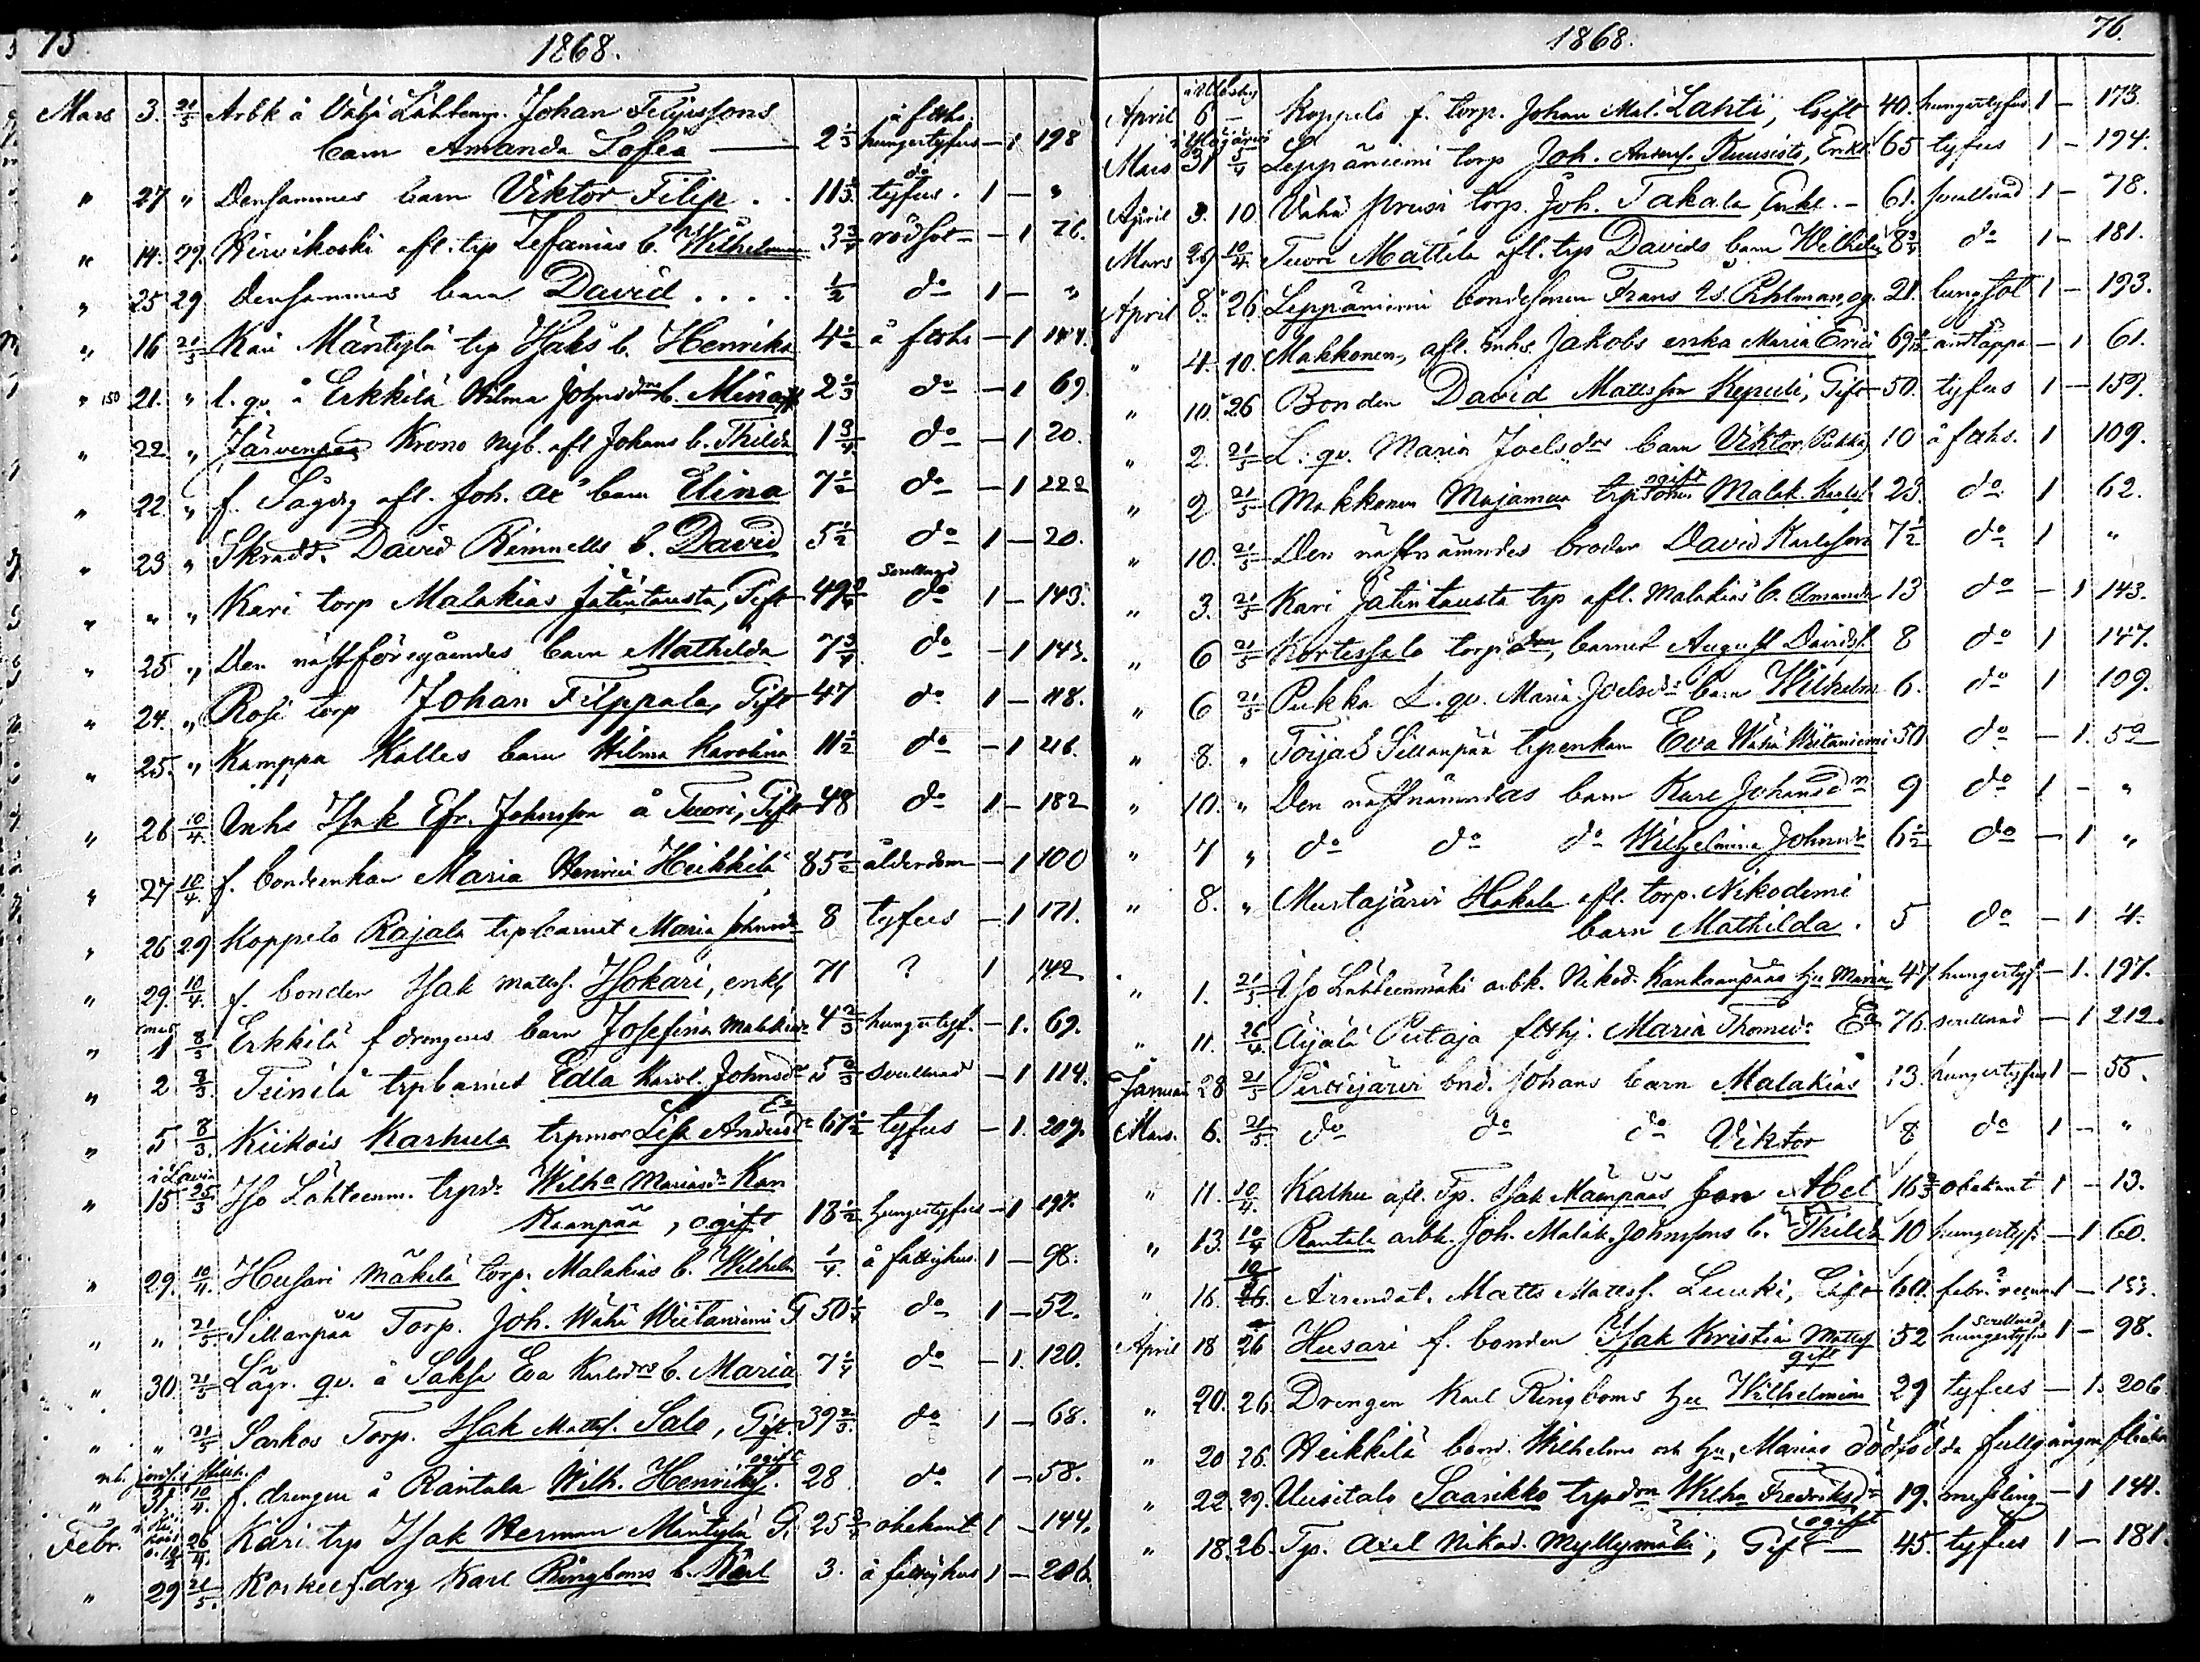 75
1868.
Mars 3. 21/5 Arbk å Vähä Lähteenm. Johan Filipssons
barn Amanda Sofia — 2 1/3 å fatth. hungertyfus — 1 198
" 27 " Densammes barn Viktor Filip . . 11 1/3 do tyfus. 1 — "
" 14. 29. Hirvikoski afl. trp Zefanias b. Wilhelmina 3 3/4 rödsot — 1 76.
" 25 29 Densammes barn David . . . . 1/2 do 1 — "
" 16 21/5 Kari Mäntylä trp Isaks b. Henrika 4 1/2 å ftths — 1 144.
" 21. " l. qv. å Erkkilä Wilma Johnsdrs b. Mina 2 2/3 do — 1 69.
" 22 " Järvenpää Krono nyb. afl Johans b. Thilda 1 3/4 do — 1 20.
" 22. " f. Sågdrg afl. Joh. Ax barn Elina 7 1/2 do — 1 222
" 23 " Skradd. David Rimnells b. David 5 1/2 do 1 — 20.
" " " Kari torp Malakias Jätintausta, Gift 49 3/4 Svullnad do 1 — 143.
" 25 " Den nästföregåendes barn Mathilda 7 3/4 do — 1 143.
" 24. " Rosi torp Johan Filppala, Gift 47 do 1 — 48.
" 25. " Kamppa Kalles barn Wilma Karolina 11 1/2 do — 1 216.
" 26 10/4. Inhs Isak Efr. Johnsson å Tuori, Gift 48 do 1 — 182
" 27 10/4. f. bondeenkan Maria Henrici Heikkilä 85 1/2 ålderdom — 1 100
" 26 29 Koppelo Rajala trpbarnet Maria Johnsdr 8 tyfus — 1 171.
" 29. 10/4. f. bonden Isak Matts. Isokari, enkl. 71 ? 1 142
" 1 8/3 Erkkilä f drengens barn Josefina Malakiasdr 4 2/3 hungertyf. — 1. 69.
" 2 8/3. Teinilä trpbarnet Edla Karol. Johnsdr 5 2/3 svullnad — 1 114.
" 5 8/3. Kiikois Karhula trpmor Lisa Andersdr Ea 67 1/2 tyfus — 1. 209.
i Lavia
" 15 25/3 Iso Lähteenm. trpdr Wilha Mariasdr Kan
kaanpää, ogift 18 1/2 hungertyfus — 1 197.
" 29. 10/4. Husari Mäkelä torp. Malakias b. Wilhelm 1/4. å fattighus 1 — 98.
" " 21/5 Sillanpää Torp. Joh. Wähä Wiitaniemi G 50 1/3 do 1 — 52.
" 30. 21/5 Lägr. qv. å Saksa Eva Karlsdrs b. Maria 7 1/4 do — 1. 120.
" " 21/5 Sarkos Torp. Isak Matts. Salo, Gift. 39 2/3. do 1 — 68.
" 31 10/4. f. drengen å Rantala Wilh. Henriks. ogift 28 do 1 — 58.
Febr. 26/4. Kari trp Isak Herman Mäntylä G. 25 3/4 obekant 1 — 144.
" 29 21/5. Koskee f. drg Karl Ringboms b. Karl 3. å fattighus 1 — 206
76.
1868.
April 6 — Koppelo f. torp. Johan Mal. Lahti, Gift 40. hungertyfus 1 — 173.
Mars 31 5/4 Leppäniemi torp Joh. Anders. Kuusisto, Enkl. 65 tyfus 1 — 194.
April 3. 10. Vähä Prusi torp. Joh. Takala Enkl. — 61. svullnad 1 — 78.
Mars 29 10/4. Tuori Mattila afl. trp Davids barn Wilhelm 8 3/4 do 1 — 181.
April 8. 26 Leppäniemi bondesonen Frans Is. Pihlman, og. 21. lungsot 1 — 193.
" 4. 10. Makkonen, afl. Inhs. Jakobs enka Maria Erici andtäppa — 1 61.
" 10. 26 Bonden David Mattsson Kepuli, Gift 50. tyfus 1 — 159.
" 2. 21/5 L. qv. Maria Joelsdrs barn Viktor (Pukka) 10 å ftths. 1 109.
" 2 21/5 Makkonen Majamaa trpsonen ogift Malak. Karlss. 23. do 1 62.
" 10. 21/5 Den nästnämndes broder David Karlsson 7 1/2 do 1 "
" 3. 21/5 Kari Jätintausta trp afl. Malakias b. Amanda 13 do — 1 143.
" 6 21/5 Kortessalo torp barnet August Davids. 8 do 1 147.
" 6 21/5 Pukka L. qv. Maria Joelsdrs barn Wilhelm 6. do 1 109.
" 8. " Toijas Sillanpää trpenkan Eva Wähä Wiitaniemi 50 do — 1. 52
" 10. " Den nästnämndas barn Karl Johanson 9 do 1 — "
" 7 " do do do Wilhelmina Johnsdr 6 1/2 do — 1 "
" 8. " Mustajärvi Hakala afl. torp. Nikodemi
barn Mathilda . 5 do — 1 4.
" 1. 21/5. Iso Lähteenmäki arbk. Nikod. Kankaanpääs hu Maria 47. hungertyf. — 1. 197.
" 11. 26/4. Äijälä Putaja ftthj. Maria Thomasdr Ea 76. svullnad — 1 212.
Januari 28 21/5 Piroijärvi bnd. Johans barn Malakias 13. hungertyfus 1 — 55.
Mars. 6. 21/5. do do do Viktor 8 do 1 — "
" 11. 10/4. Kalhu afl. Tp. Isak Mäenpääs son Abel 16 2/3 obekant 1 — 13.
" 13. 10/4 Rantala arbk. Joh. Malak. Johnssons b. Thilda 10 hungertyf. — 1 60.
" 16. 10 Arrendat. Matts Matts. Luuki, Gift 60. 1 —
April 18 26 Husari f. bonden Isak Kristian Matts gift 52 svullnad hungertyfus 1 — 98.
" 20. 26. Drengen Karl Ringboms hu Wilhelmina 29 tyfus — 1. 206
" 20 26. Heikkilä bond. Wilhelms och hu, Marias dödfödda fullgångna flicka
" 22. 29. Uusitalo Saarikko trpdn Wilha Fredriksdr ogift 19. messling — 1 144.
" 18. 26. Tp. Axel Nikod. Myllymäki, Gift — 45. tyfus 1 — 181.